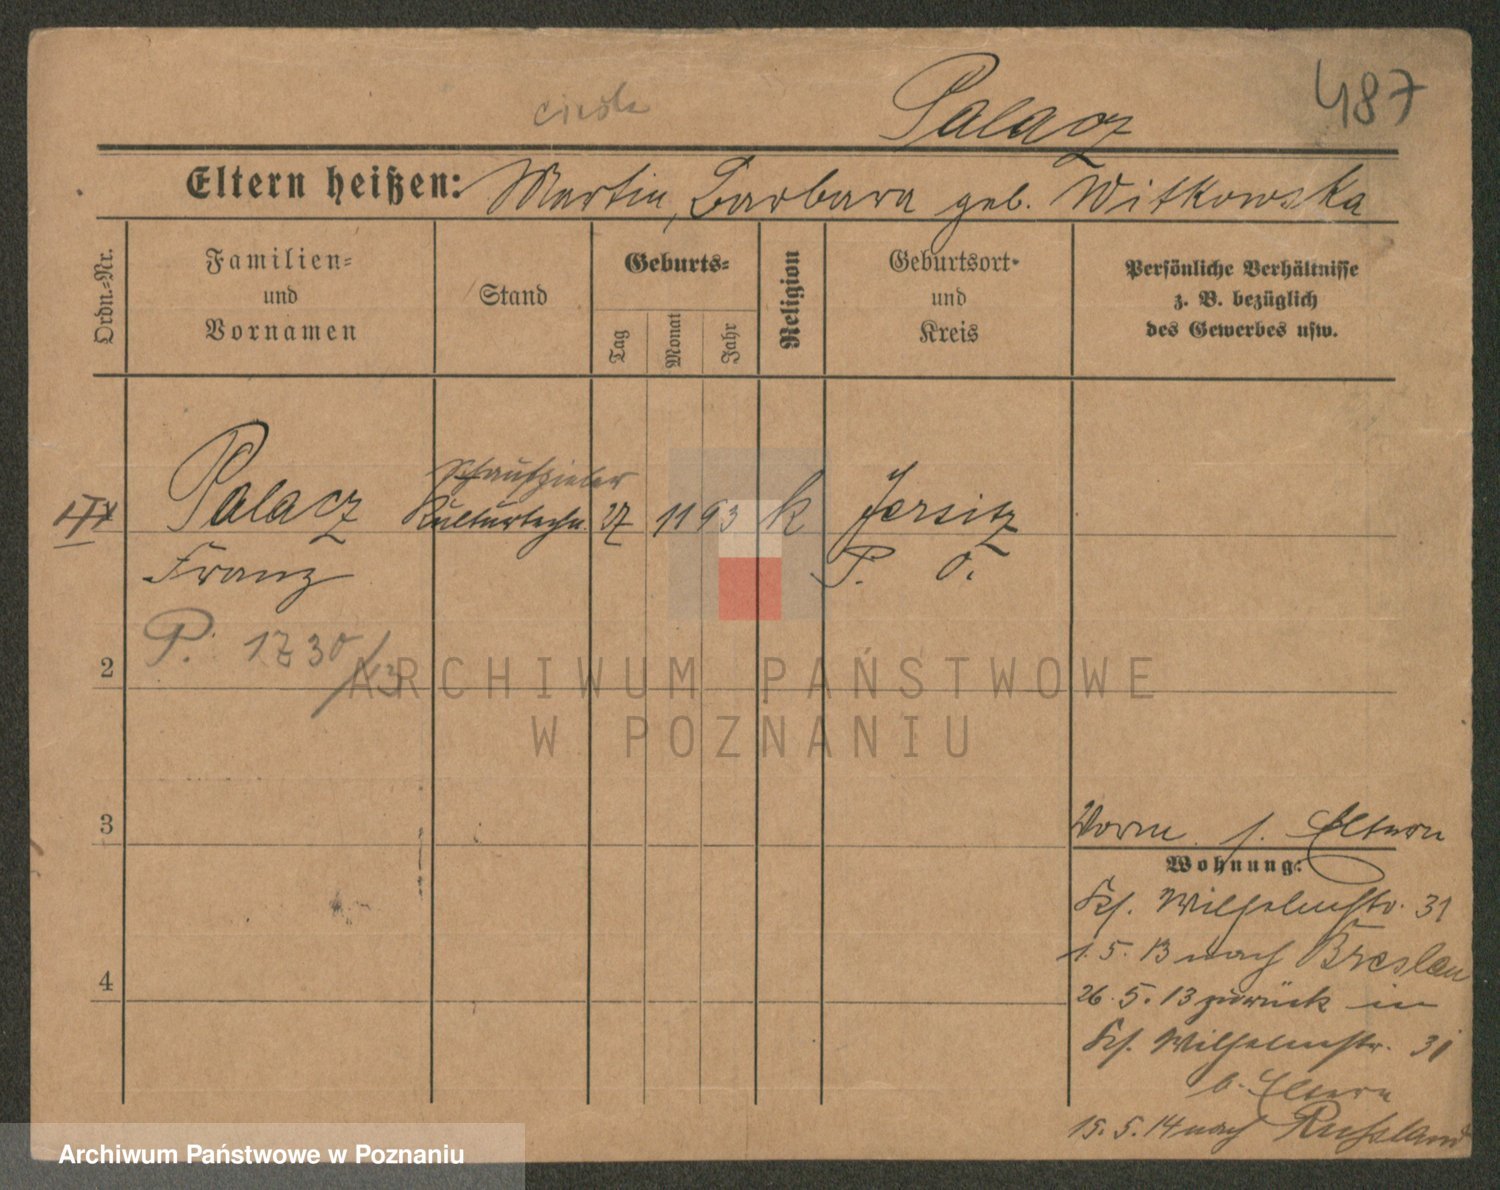 Palacz
487
Eltern heißen: Martin, Barbara geb. Witkowska
Ordn.-Nr.
Familien-
und
Vornamen
Stand
Geburts-
Tag
Monat
Jahr
Religion
Geburtsort-
und
Kreis
Persönliche Verhältnisse
z. B. bezüglich
des Gewerbes usw.
Schauspieler
Palacz Kulturtechn. 27 11 93 k Jersitz
Franz P. O.
P. 1730/13
2
3
4
Vorm. s. Eltern
Wohnung:
Ks. Wilhelmstr. 31
1. 5. 13 nach Breslau
26. 5. 13 zurück in
Ks. Wilhelmstr. 31
b. Eltern
15. 5. 14 nach Russland
ARCHIWUM PAŃSTWOWE
W POZNANIU
Archiwum Państwowe w Poznaniu